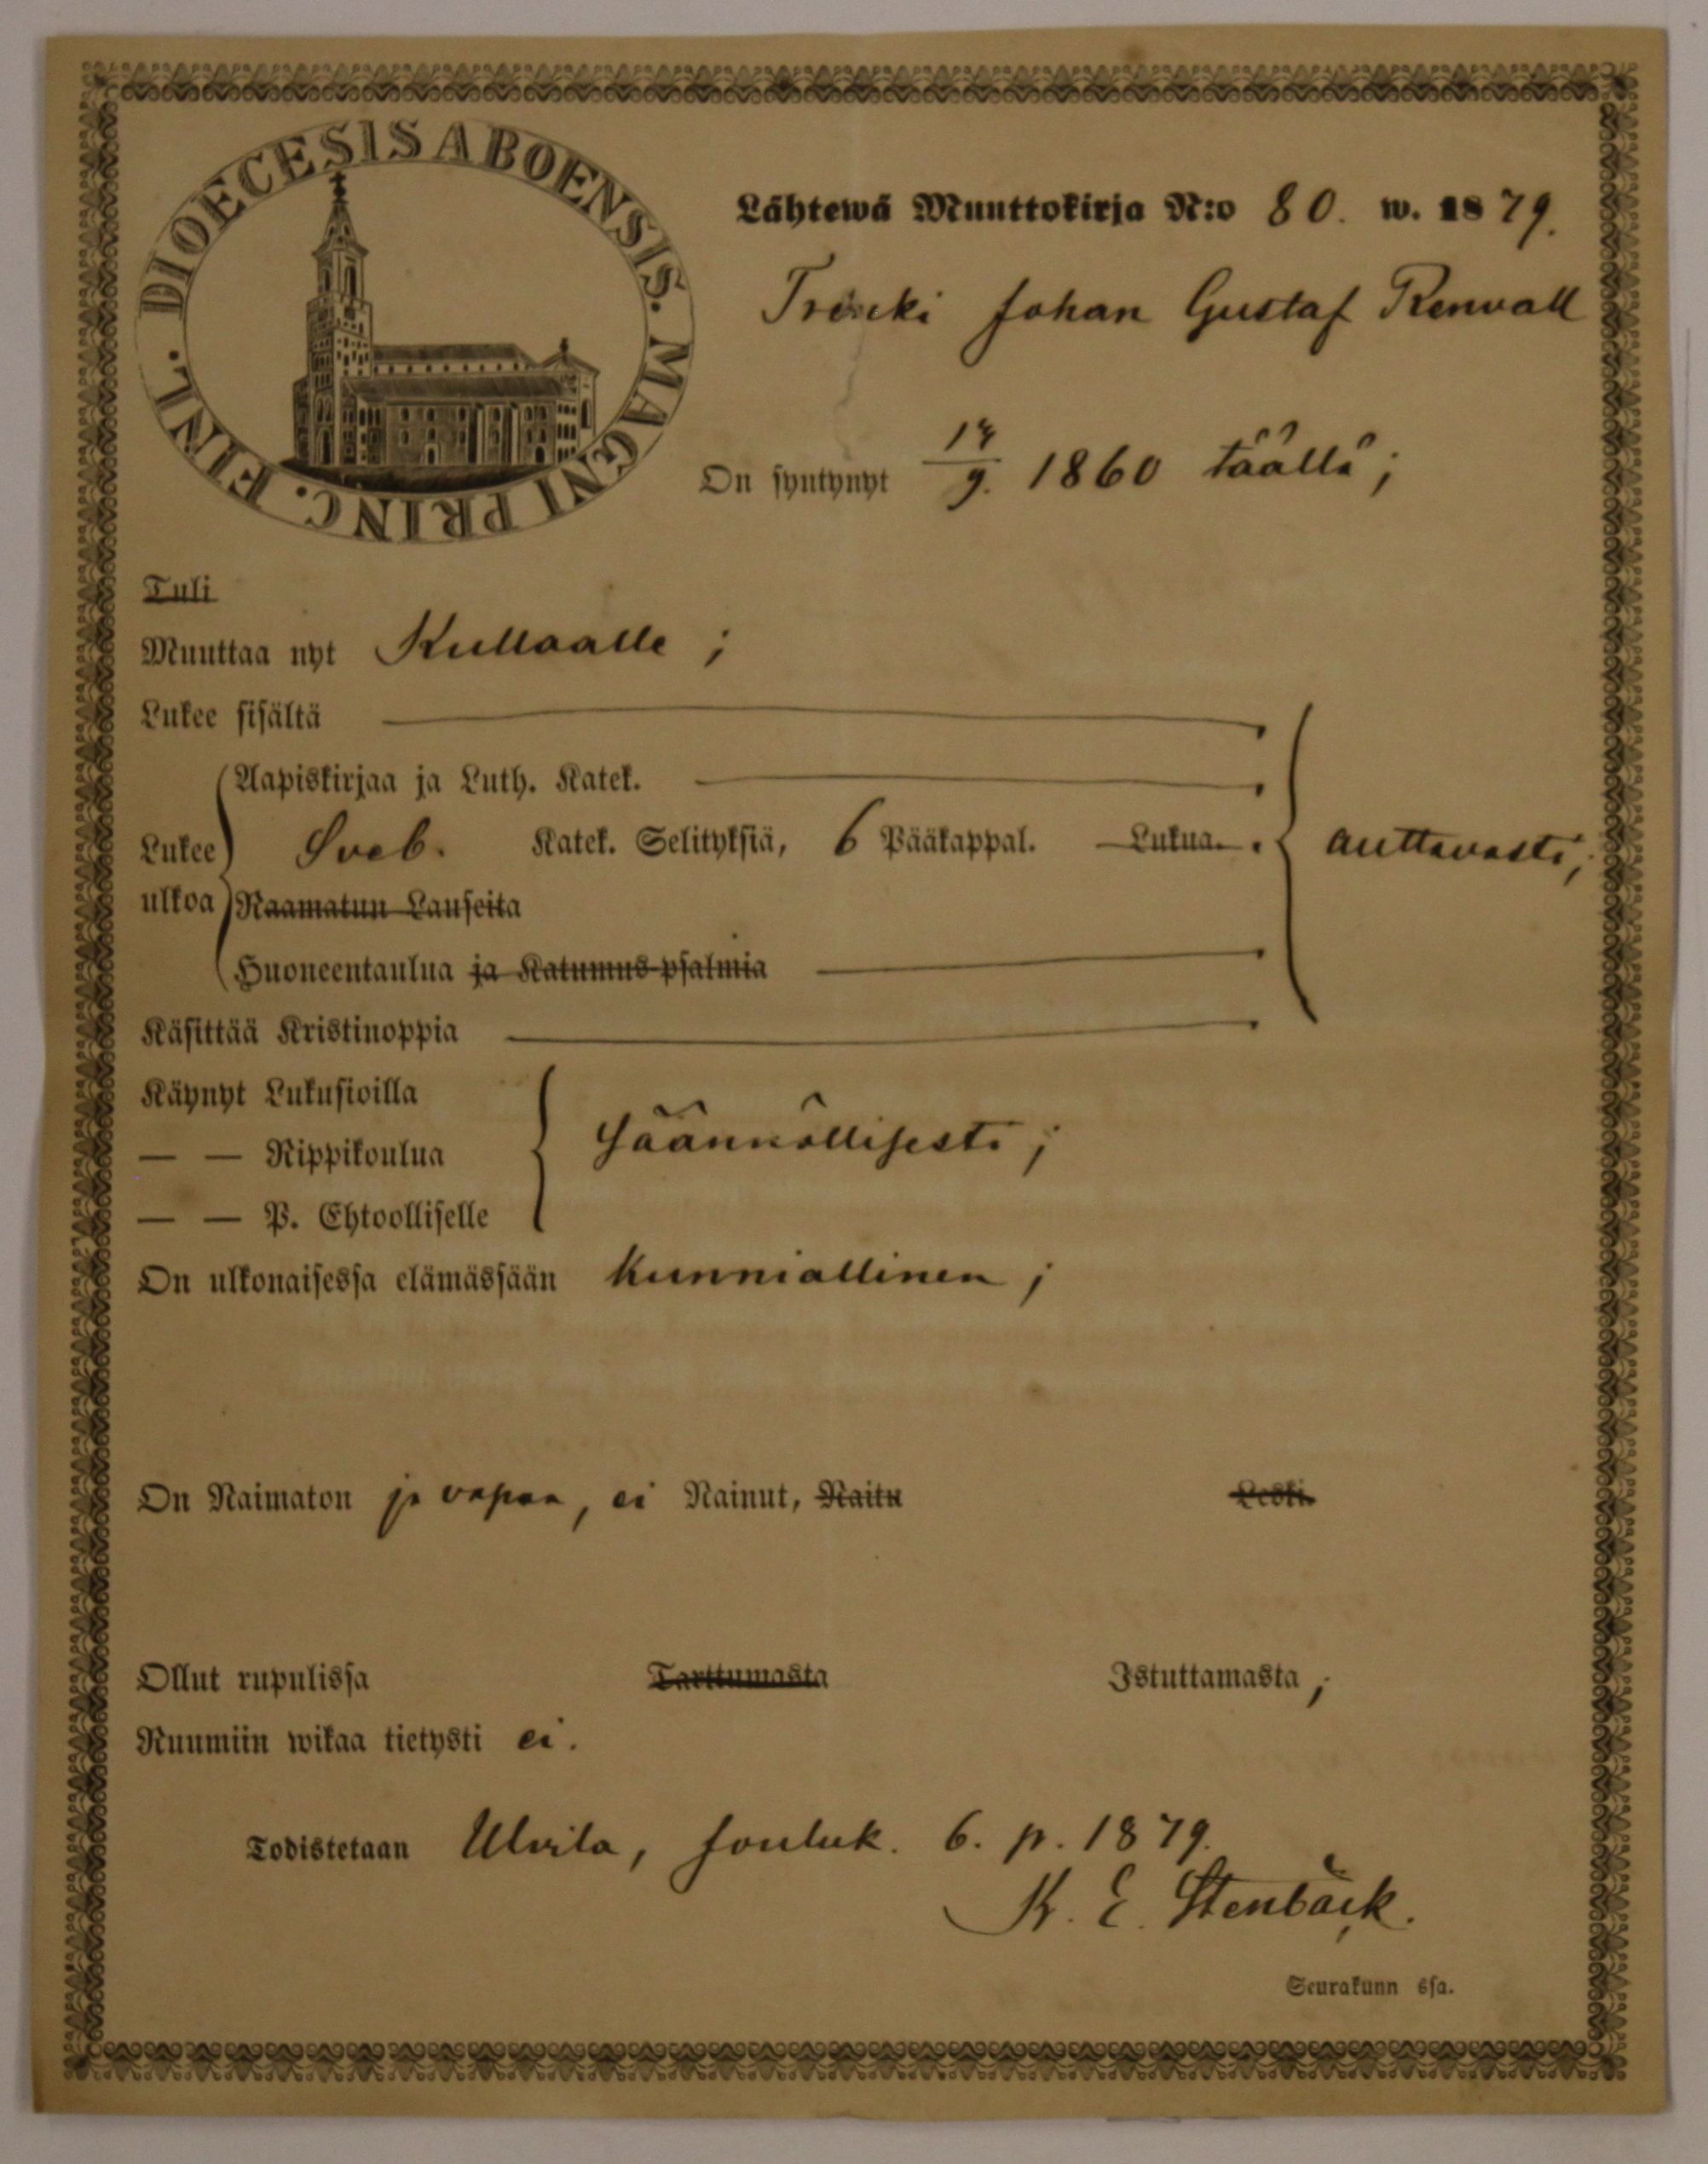 DIOECESIS ABOENSIS. MAGNI PRINC. FINL.
Lähtewä Muuttokirja N:o 80. w. 1879.
Trenki Johan Gustaf Renwall
On syntynyt 9. 1860 täällä;
Tuli
Muuttaa nyt Kullaalle ;
Lukee sisältä
Aapiskirjaa ja Luth. Katek.
Lukee ulkoa Sveb. Katek. Selityksiä, 6 Pääkappal. Lukua. auttavasti;
Raamatun Lauseita
Huoneentaulua ja Katumus-psalmia
Käsittää Kristinoppia
Käynyt Lukusioilla
— — Rippikoulua Säännöllisesti ;
— — P. Ehtoolliselle
On ulkonaisessa elämässään Kunniallinen ;
On Naimaton ja vapaa, ei Nainut, Naitu Leski.
Ollut rupulissa Tarttumasta Istuttamasta ;
Ruumiin wikaa tietysti ei.
Todistetaan Ulvila, Jouluk. 6. p. 1879.
K. E. Stenbäck.
Seurakunn ssa.